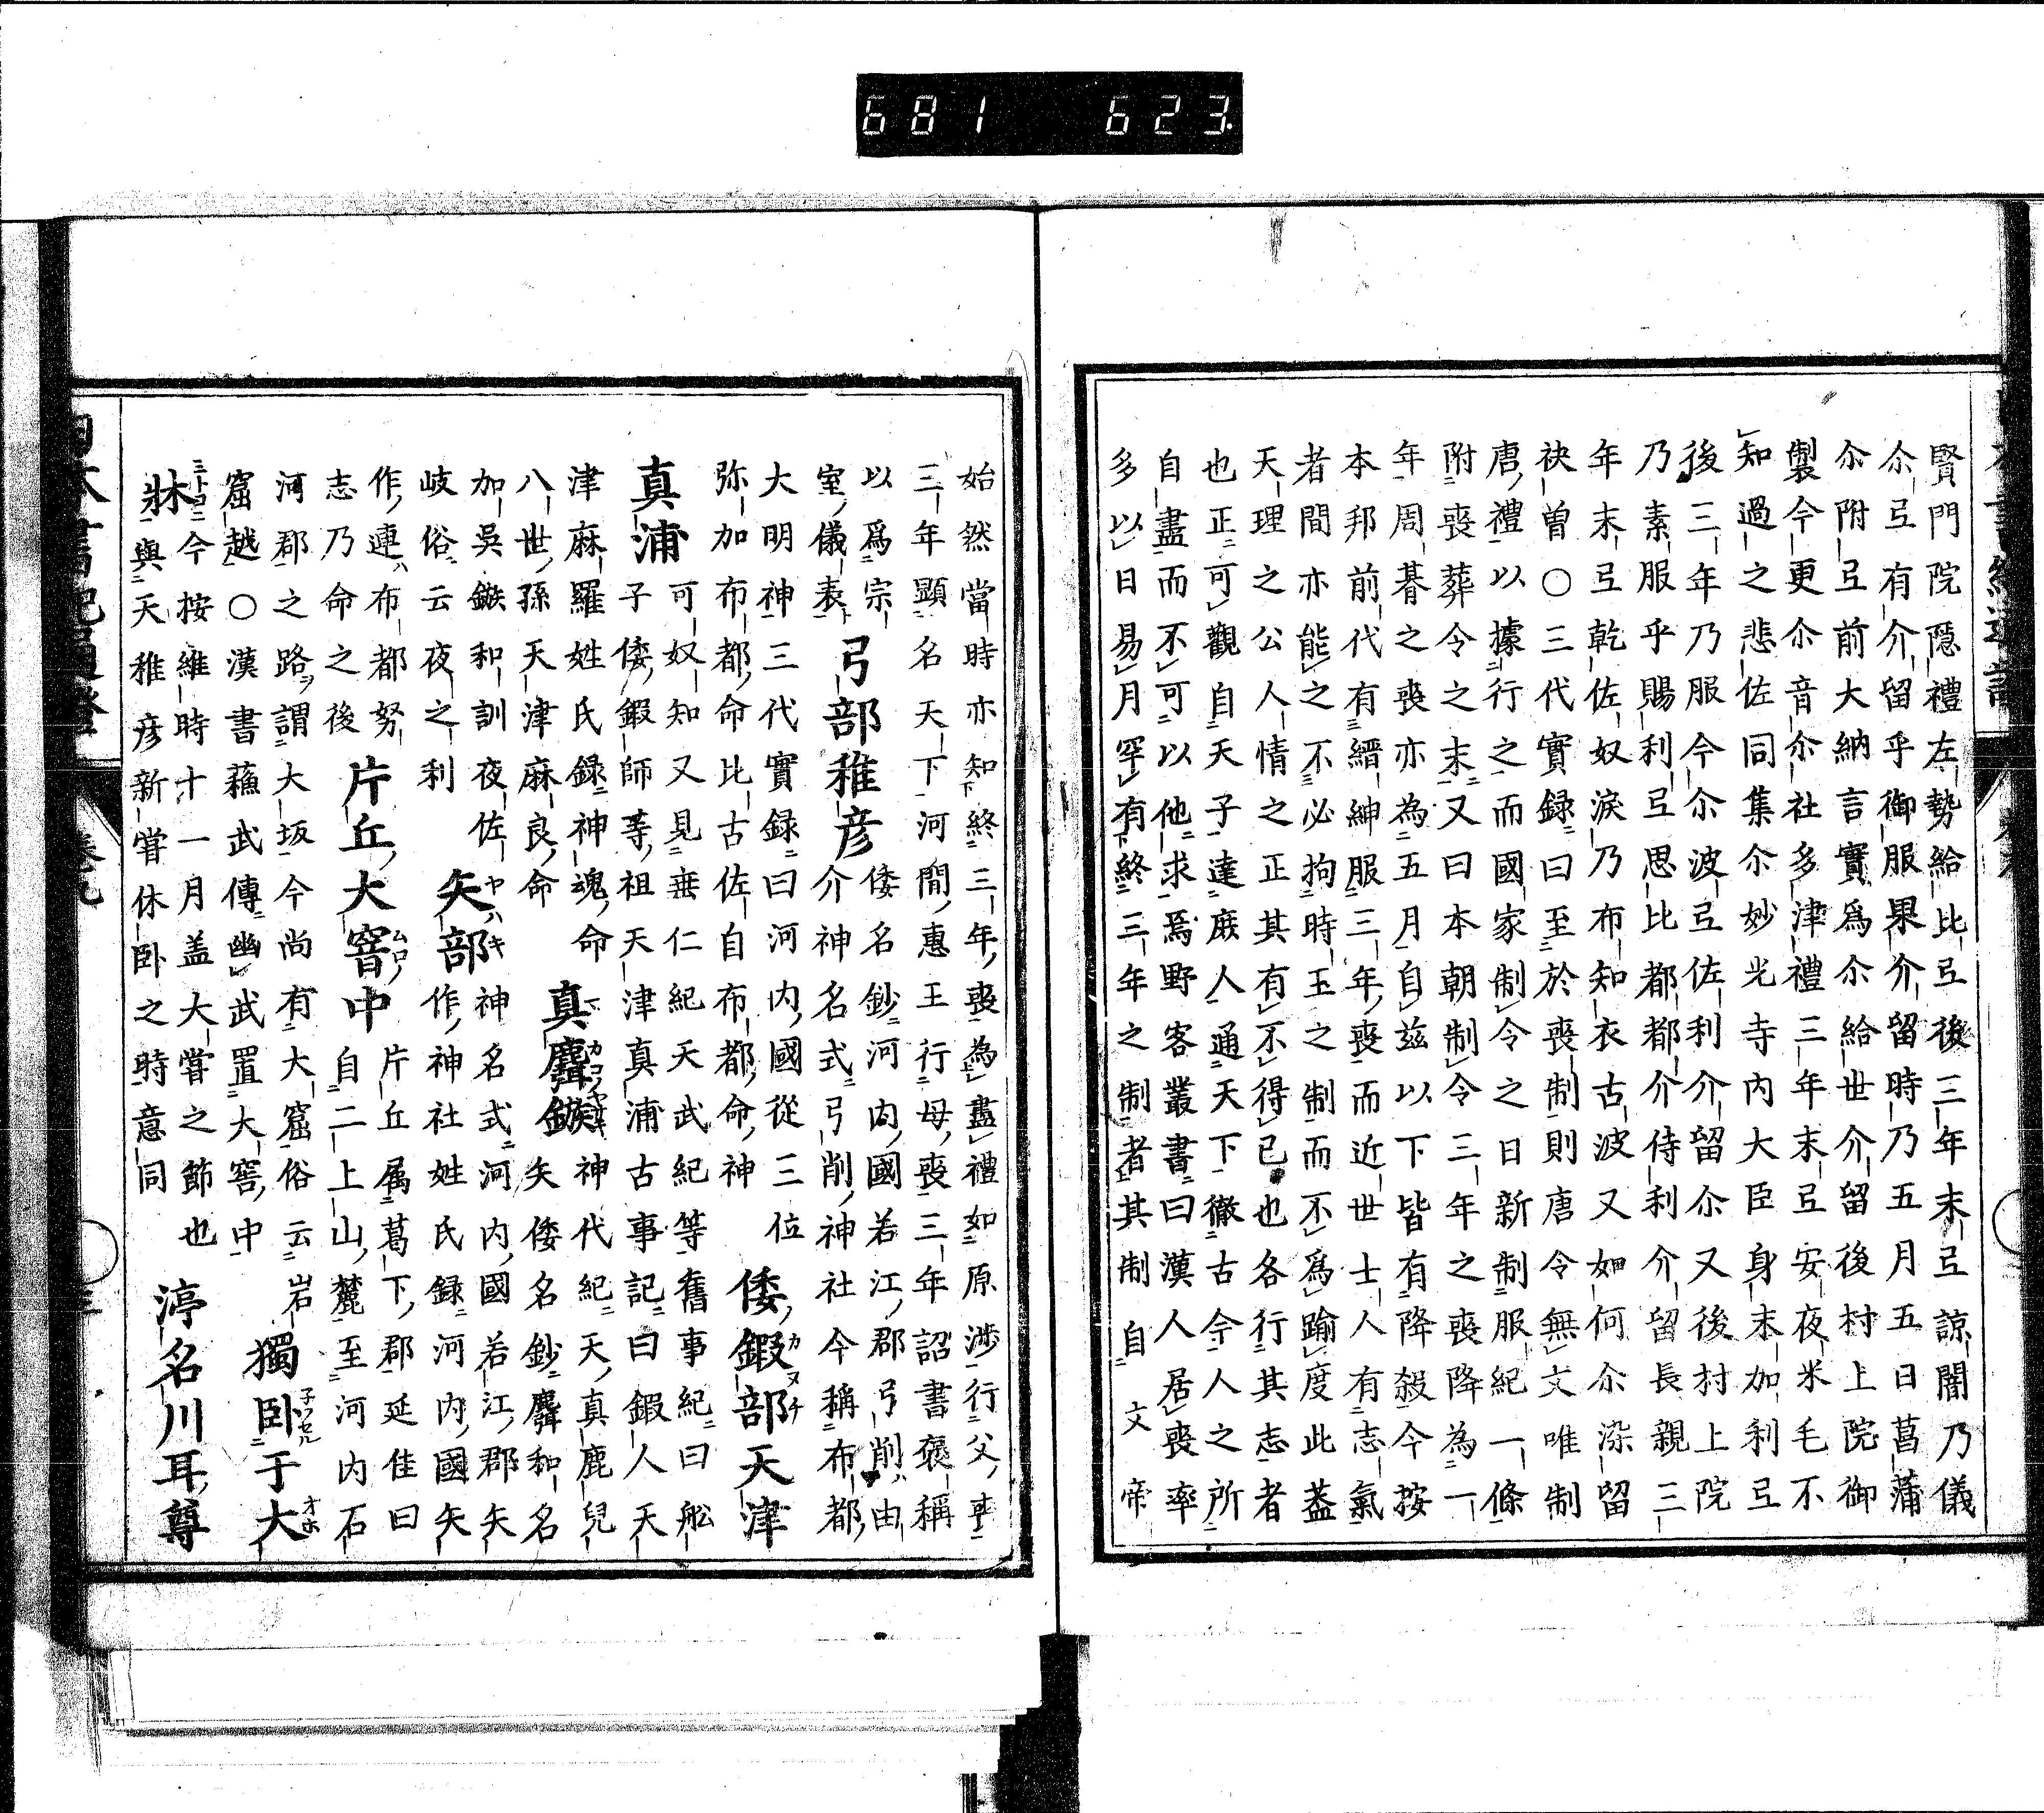 681 623
賢門院隱禮左勢給比弖後三年末弖諒闇乃儀
尒弖有介留乎御服果介留時乃五月五日菖蒲
尒附弖前大納言實爲尒給世介留後村上院御
製今更尒音尒社多津禮三年末弖安夜米毛不
知過之悲佐同集尒妙光寺内大臣身末加利弖
後三年乃服今尒波弖佐利介留尒又後村上院
乃素服乎賜利弖思比都都介侍利介留長親三
年末弖乾佐奴淚乃布知衣古波又如何尒染留
袂曽〇三代實録曰至於喪制則唐令無文唯制
唐禮以據行之而國家制令之日新制服紀一條
附喪葬令之末又曰本朝制令三年之喪降為一
年周朞之喪亦為五月自兹以下皆有降殺今按
本邦前代有縉紳服三年喪而近世士人有志氣
者間亦能之不必拘時玉之制而不爲踰度此葢
天理之公人情之正其有不得已也各行其志者
也正可觀自天子達庶人通天下徹古今人之所
自盡而不可以他求焉野客叢書曰漢人居喪率
多以日易月罕有終三年之制者其制自文帝
始然當時亦知終三年喪為盡禮如原渉行父喪
三年顯名天下河間惠王行母喪三年詔書褒稱
以爲宗 弓部稚彦 倭名鈔河内國若江郡弓削由
室儀表 介神名式弓削神社今稱布都
大明神三代實録曰河内國從三位 倭鍛部天津
弥加布都命比古佐自布都命神
真浦 可奴知又見垂仁紀天武紀等舊事紀曰舩
子倭鍛師等祖天津真浦古事記曰鍛人天
津麻羅姓氏録神魂命 真麛鏃 神代紀天真鹿兒
八世孫天津麻良命 矢倭名鈔麛和名
加吳鏃和訓夜佐 矢部 神名式河内國若江郡矢
岐俗云夜之利 作神社姓氏録河内國矢
作連布都努 片丘大窨中 片丘属葛下郡延佳曰
志乃命之後 自二上山麓至河内石
河郡之路謂大坂今尚有大窟俗云岩 獨臥于大
窟越〇漢書蘓武傳幽武置大窖中
牀 今按維時十一月盖大嘗之節也 渟名川耳尊
與天稚彦新嘗休卧之時意同